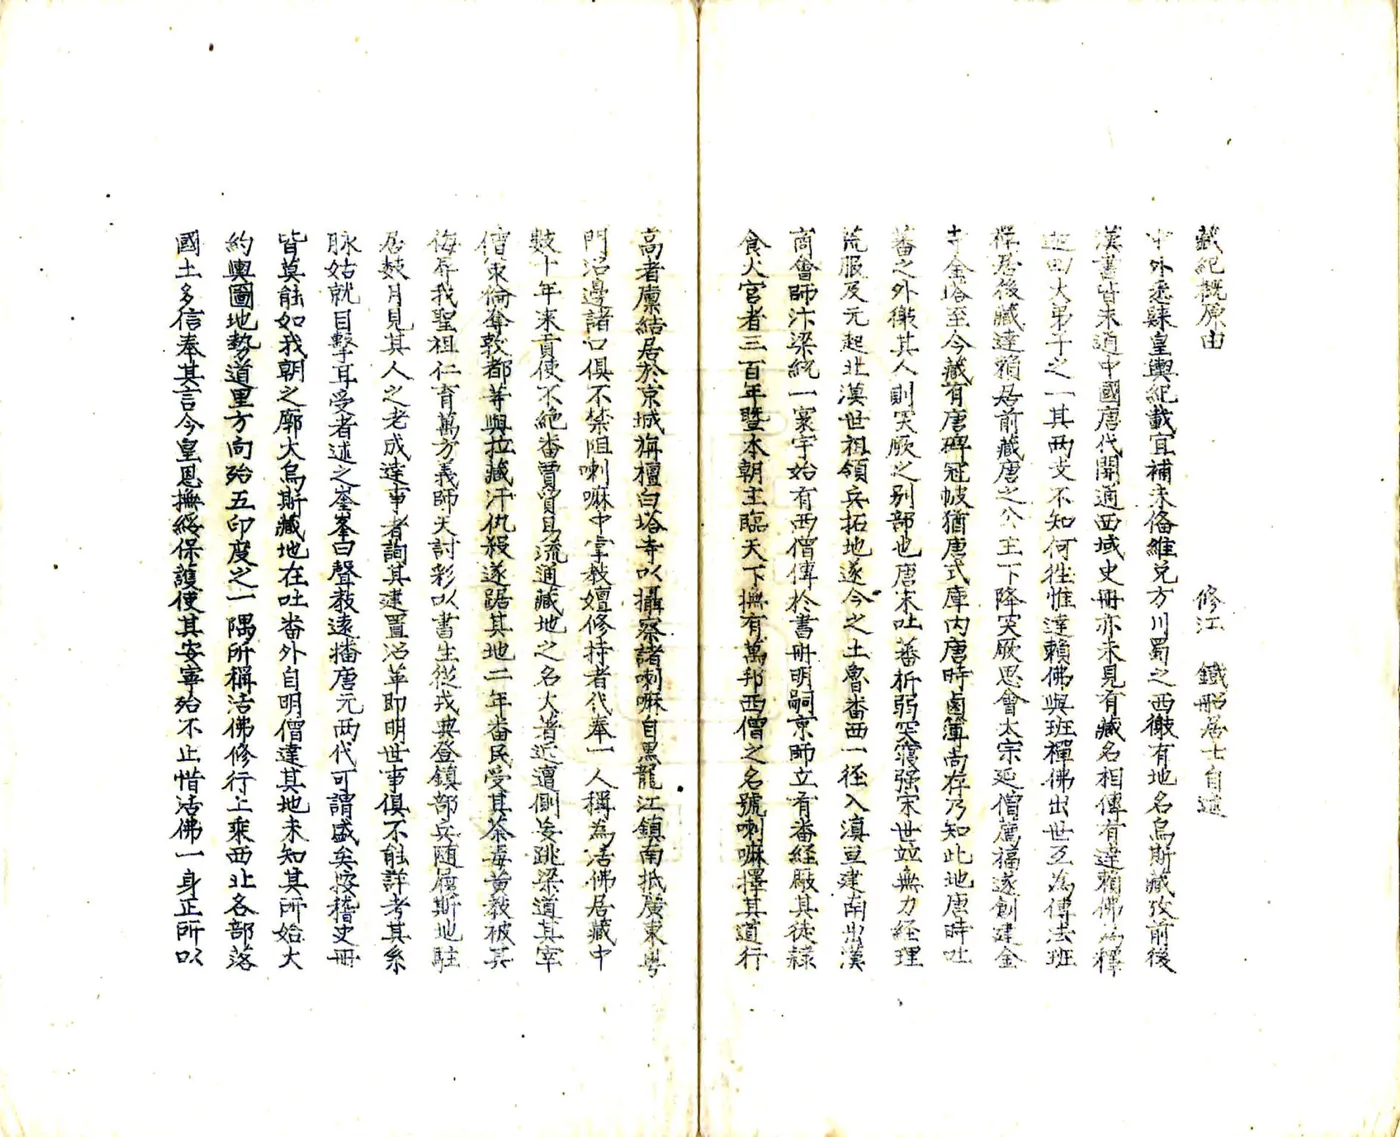 藏紀概原由
修江 鐵船居士自述
中外丞隸皇輿紀載宜補未俻維兌方川蜀之西徼有地名烏斯藏攷前後
漢書皆未通中國唐代開通西域史冊亦未見有藏名相傳有達賴佛為釋
迦曰大弟子之一其两支不知何徃惟達賴佛與班禪佛出世互為傳法班
禪居後藏達賴居前藏唐之公主下降突厥思會太宗延僧唐福遂創建金
寺金塔至今藏有唐碑冠帔猶唐式庫内唐時鹵簿尚存乃知此地唐時吐
蕃之外徼其人則突厥之别部也唐末吐蕃析弱突厥强宋世並無力经理
荒服及元起北漠世祖領兵拓地遂今之土魯畨西一徑入滇亘建南出漢
商會師汴梁統一寰宇始有西僧傳於書冊明嗣京師立有畨経厰其徒隸
食火宫者三百年暨本朝主臨天下撫有萬邦西僧之名號喇嘛擇其道行
高者廪結居於京城栴檀白塔寺以攝察諸喇嘛自黒龍江鎮南抵廣東粤
門沿邊諸口俱不禁阻喇嘛中掌教嬗修持者代奉一人稱為活佛居藏中
數十年来貢使不絶畨賈貿易流通藏地之名大著近澶側妄跳梁道其宰
僧東倫奪敦都等與拉藏汗仇殺遂踞其地二年畨民受其荼毒黄教被其
侮辱我聖祖仁育萬方義師天討彩以書生從戎典登鎮部兵随履斯地駐
居數月見其人之老成達事者詢其建置沿革即明世事俱不能詳考其系
脉姑就目擊耳受者述之崟峯曰聲教遠播唐元两代可謂盛矣按稽史冊
皆莫能如我朝之廓大烏斯藏地在吐畨外自明僧達其地未知其所始大
約輿圖地勢道里方向殆五印度之一隅所稱活佛修行上乘西北各部落
國土多信奉其言今皇恩撫綏保護使其安寧殆不止惜活佛一身正所以